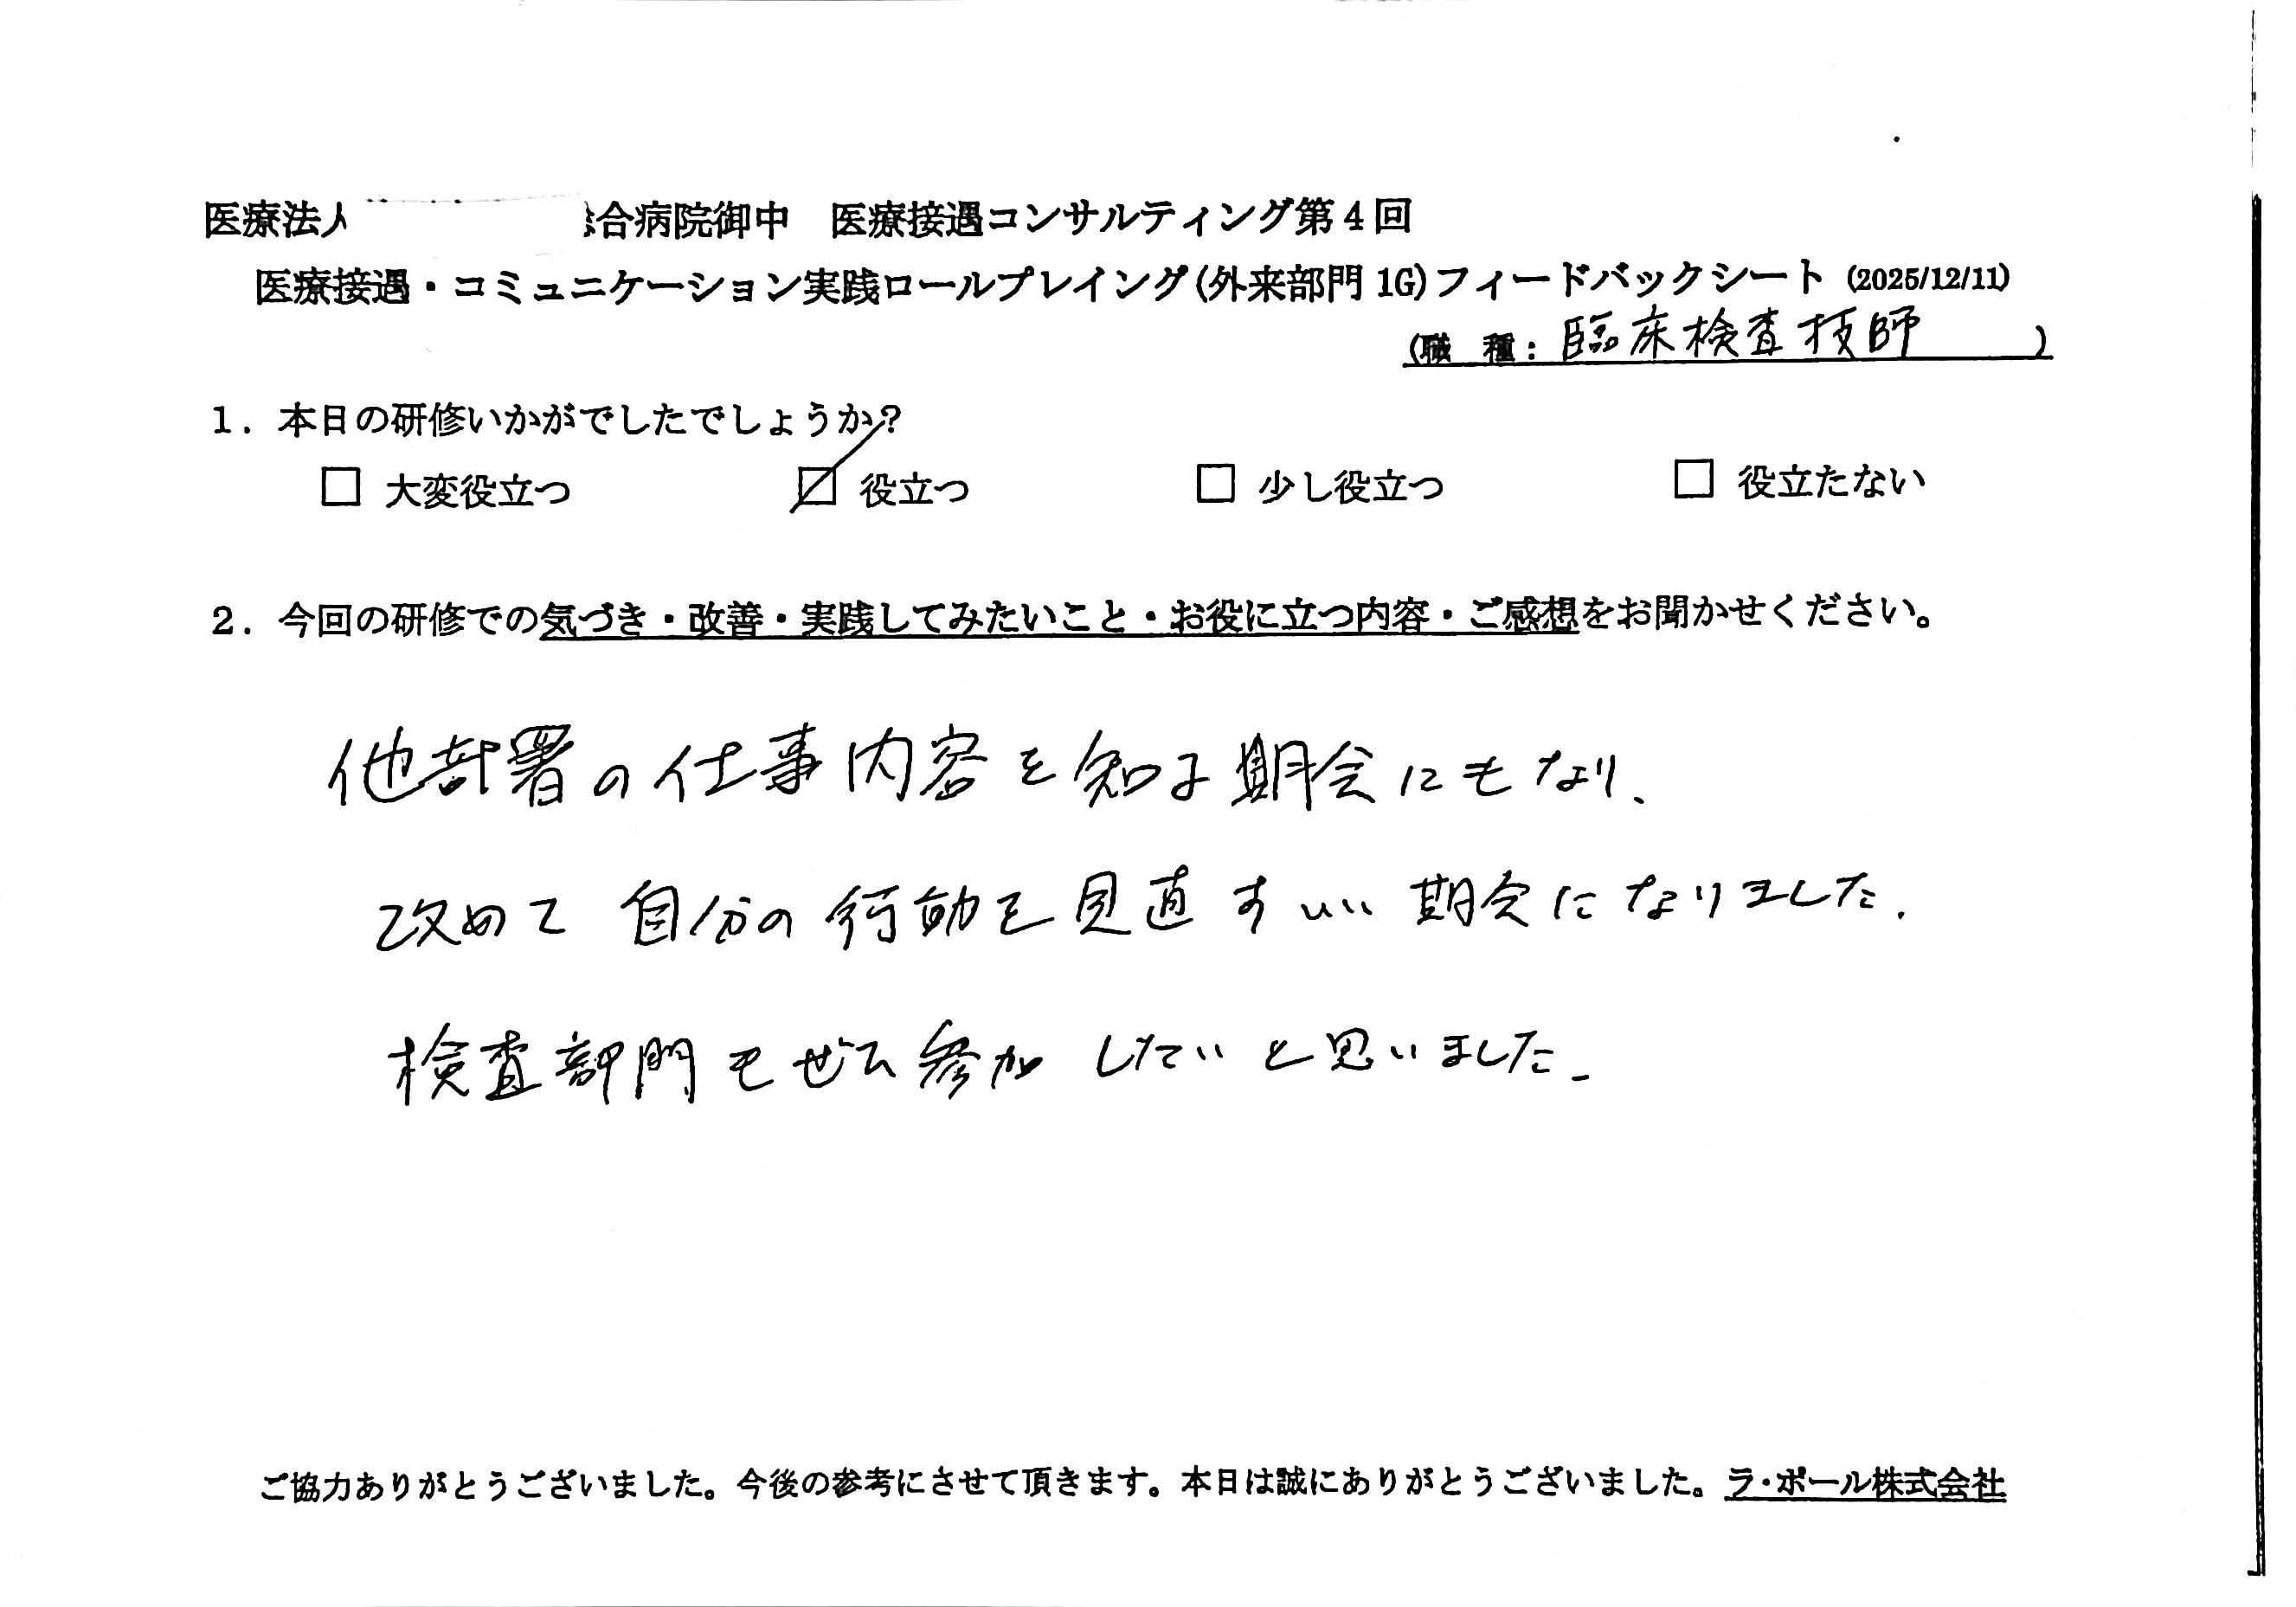 医療法人 合病院御中 医療接遇コンサルティング第4回
医療接遇・コミュニケーション実践ロールプレイング(外来部門1G)フィードバックシート (2025/12/11)
(職 種: 臨床検査技師 )
1. 本日の研修いかがでしたでしょうか?
□ 大変役立つ ☑ 役立つ □ 少し役立つ □ 役立たない
2. 今回の研修での気づき・改善・実践してみたいこと・お役に立つ内容・ご感想をお聞かせください。
他部署の仕事内容を知る期会にもなり、
改めて自分の行動を見直すいい期会になりました.
検査部門もぜひ参加したいと思いました.
ご協力ありがとうございました。今後の参考にさせて頂きます。本日は誠にありがとうございました。ラ・ポール株式会社